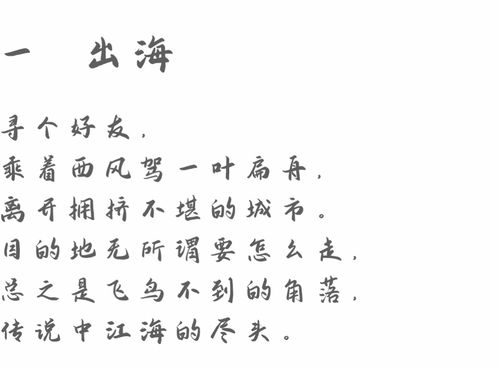 一 出海
寻个好友，
乘着西风驾一叶扁舟，
离开拥挤不堪的城市。
目的地无所谓要怎么走，
总之是飞鸟不到的角落，
传说中江海的尽头。